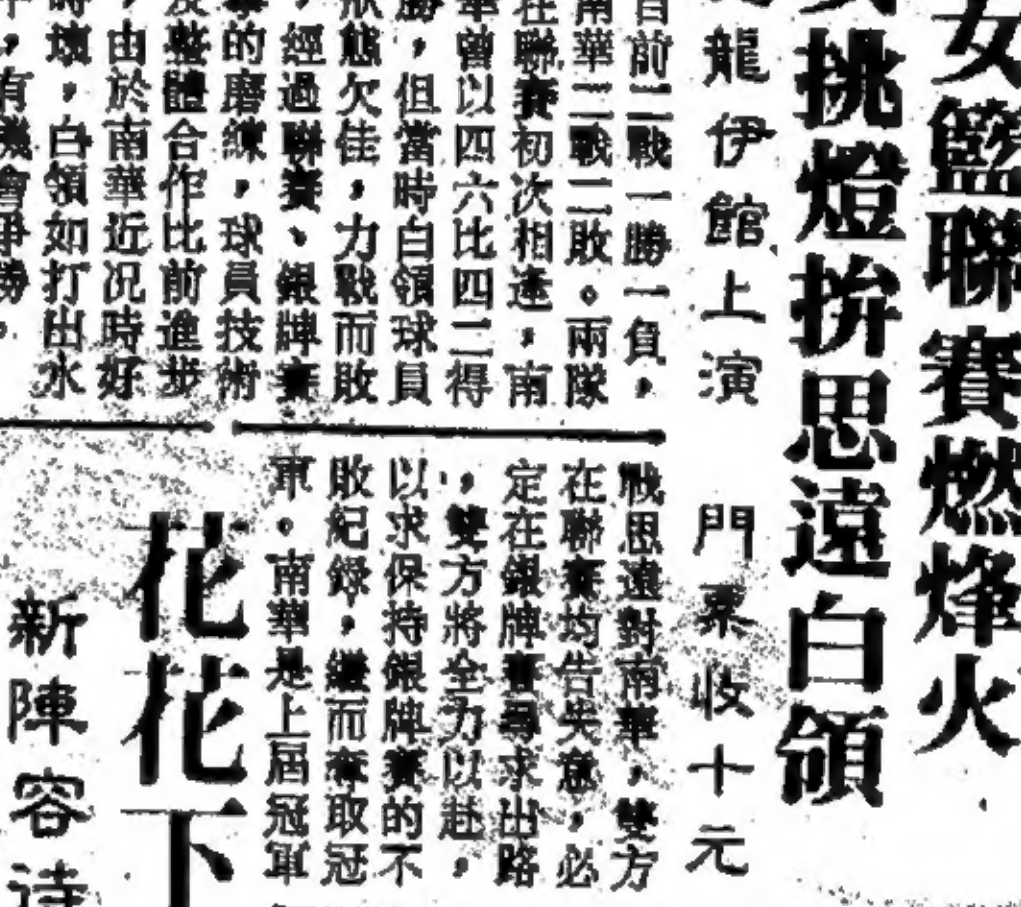 女籃聯賽燃烽火
挑燈拚思遠白領
龍伊館上演
門票收十元
目前二戰一勝一負，
南華二戰二敗。兩隊
在聯賽初次相逢，南
華曾以四六比四二得
勝，但當時白領球員
狀態欠佳，力戰而敗
，經過聯賽、銀牌賽
的磨練，球員技術
及整體合作比前進步
，由於南華近況時好
時壞，白領如打出水
，有機會爭勝。
戰思遠對南華，雙方
在聯賽均告失意，必
定在銀牌賽尋求出路
，雙方將全力以赴，
以求保持銀牌賽的不
敗紀錄，繼而奪取冠
軍。南華是上屆冠軍
花花下
新陣容